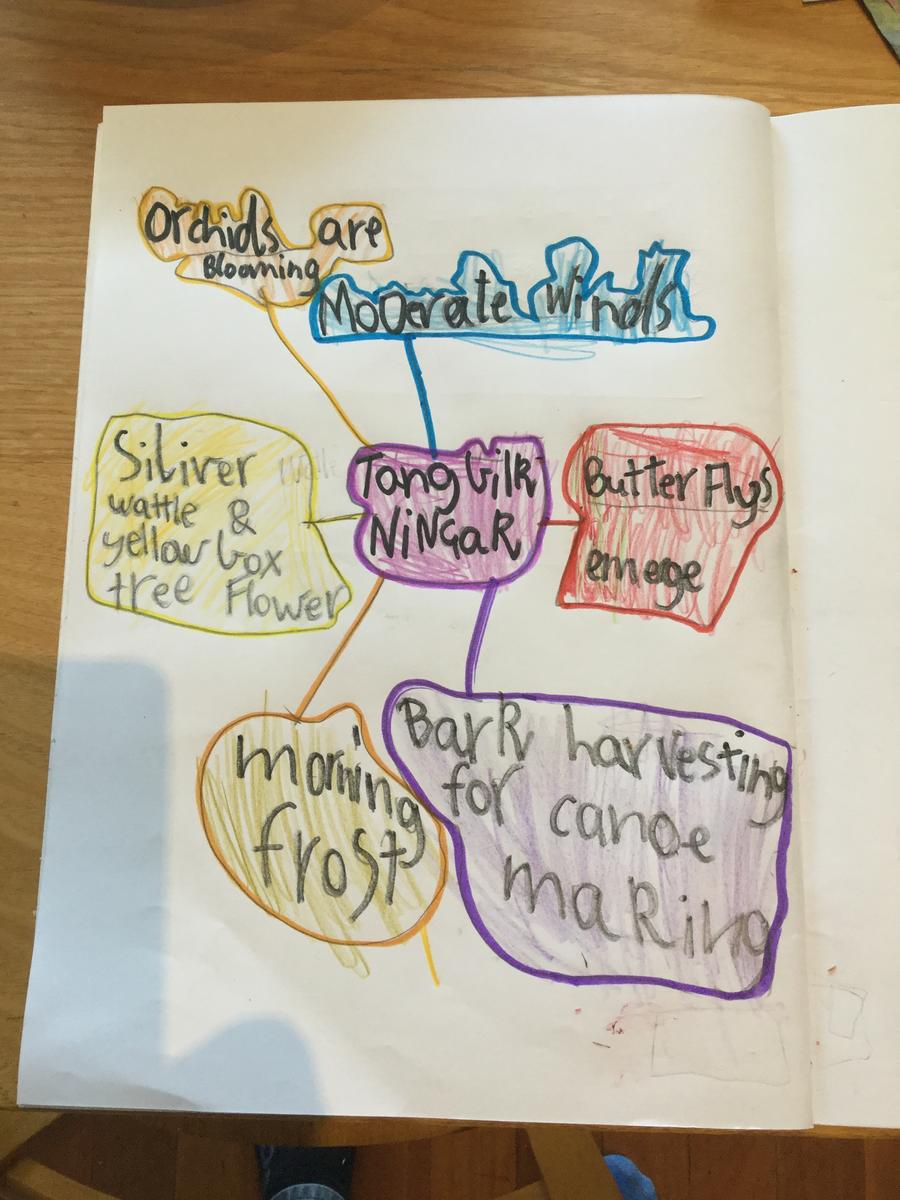 Orchids are
Blooming
Moderate winds
Siliver
wattle &
yellow box
tree Flower
Tang bilk
NiNGaR
Butter Flys
emege
morning
frost
Bark harvesting
for canoe
making